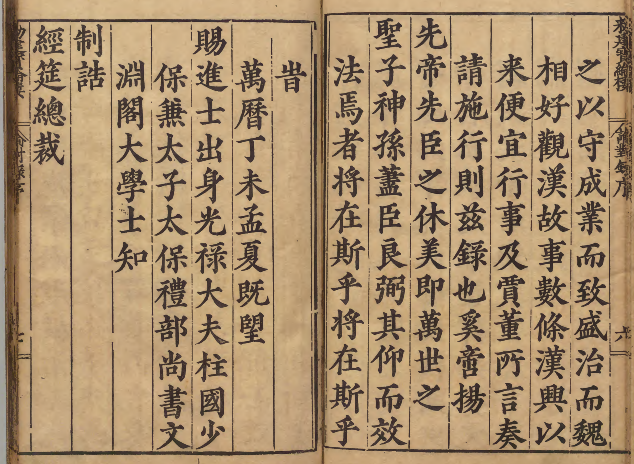 之以守成業而致盛治而魏
相好觀漢故事數條漢興以
来便宜行事及賈董所言奏
請施行則兹錄也奚啻揚
先帝先臣之休美即萬世之
聖子神孫藎臣良弼其仰而效
法焉者将在斯乎将在斯乎
旹
萬曆丁未孟夏既朢
賜進士出身光禄大夫柱國少
保兼太子太保禮部尚書文
淵閣大學士知
制誥
經筵總裁